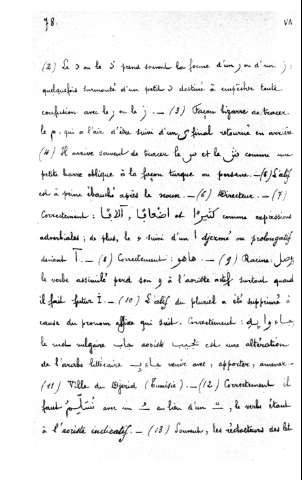 78. ٧٨
(2) Le د ou le ذ prend souvent la forme d'un ر ou d'un ز,
quelquefois surmonté d'un petit د destiné à empêcher toute
confusion avec le ر ou le ز. — (3) Façon bizarre de tracer
le م, qui a l'air d'être suivi d'un ی final retourné en arrière
(4) Il arrive souvent de tracer le س et le ش comme une
petite barre oblique à la façon turque ou persane. — (5) L'alif
est à peine ébauché après le noun. — (6) Directeur. — (7)
Correctement : et كثيرًا comme expressions
adverbiales ; de plus, le ء suivi d'un ا djezmé ou prolongatif
devient آ — (8) Correctement : هاهو — (9) Racine : وصل
le verbe assimilé perd son و à l'aoriste actif surtout quand
il fait — (10) L'alif du pluriel a été supprimé à
cause du pronom affixe qui suit. Correctement :
le mot vulgaire جاب aoriste يجيب est une altération
de l'arabe littéraire venir avec, apporter, amener —
(11) Ville du Djerid (Tunisie). — (12) Correctement il
faut نُسَلِّمُ avec un ُ au lieu d'un ْ, le verbe étant
à l'aoriste indicatif. — (13) Souvent, les rédacteurs des let